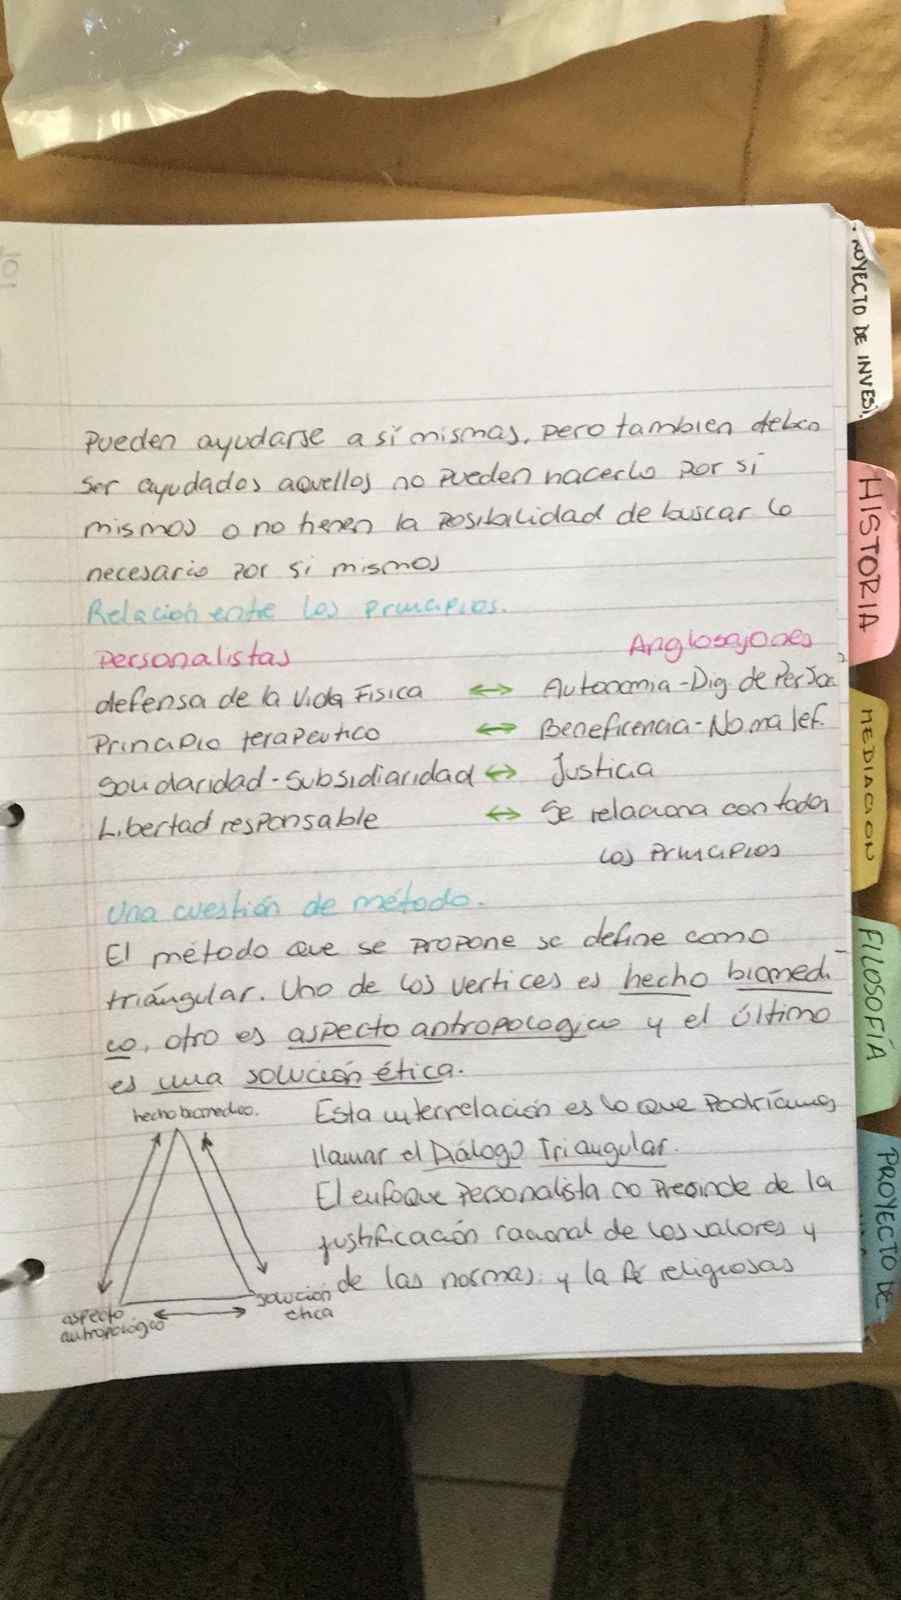 pueden ayudarse a si mismas, pero tambien deben
ser ayudados aquellos no pueden hacerlo por si
mismos o no tienen la posibilidad de buscar lo
necesario por si mismos
Relación entre los principios.
Personalistas Anglosajones
defensa de la Vida Fisica ↔ Autonomia-Dig. de Person
Principio terapeutico ↔ Beneficencia-No malef.
Solidaridad-Subsidiaridad ↔ Justicia
Libertad responsable ↔ Se relaciona con todos
los principios
Una cuestión de método.
El método que se propone se define como
triángular. Uno de los vertices es hecho biomedi-
co, otro es aspecto antropologico y el último
es una solución ética.
hecho biomedico.
aspecto
antropológico
solución
etica
Esta interrelación es lo que podríamos
llamar el Diálogo Triangular.
El enfoque personalista no prescinde de la
justificación racional de los valores y
de las normas. y la fé religiosas
ROYECTO DE INVESI
HISTORIA
MEDIACION
FILOSOFÍA
PROYECTO DE